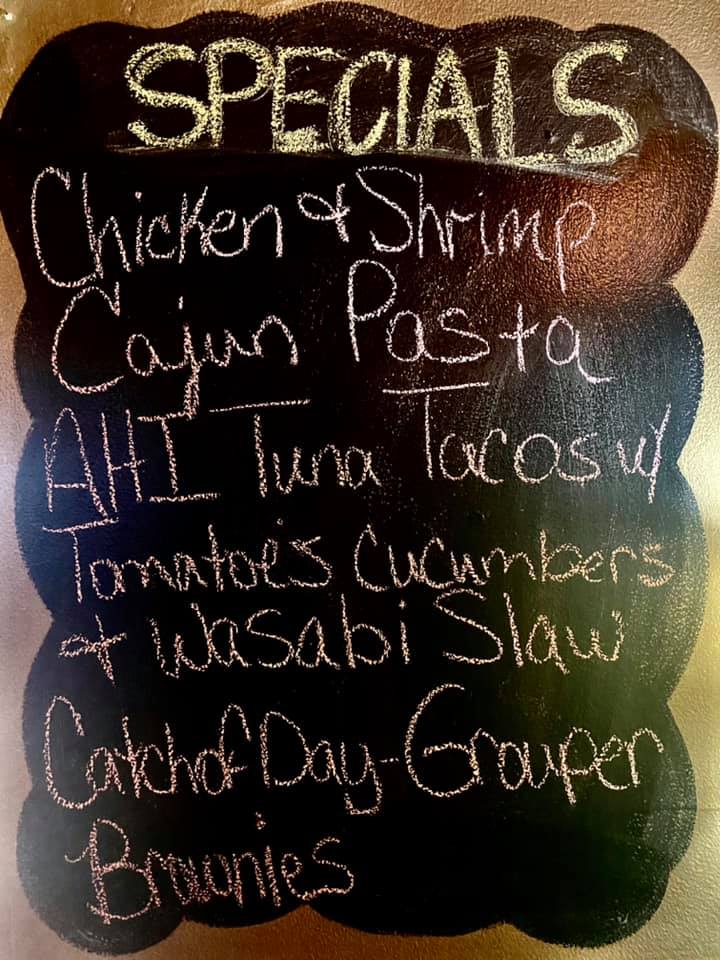 SPECIALS
Chicken & Shrimp
Cajun Pasta
AHI Tuna Tacos w/
Tomatoe's Cucumbers
& Wasabi Slaw
Catch of Day-Grouper
Brownies